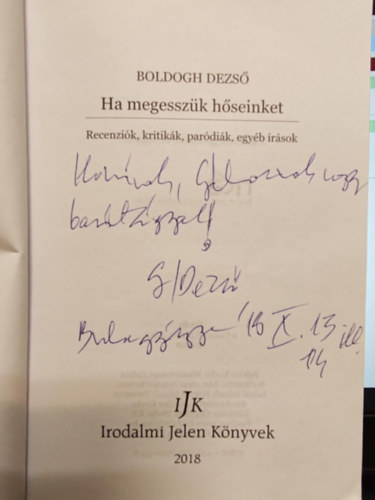 BOLDOGH DEZSŐ
Ha megesszük hőseinket
Recenziók, kritikák, paródiák, egyéb írások
nagy
barátsággal!
G/Dezső
'18 X. 13 ill.
14
IJK
Irodalmi Jelen Könyvek
2018